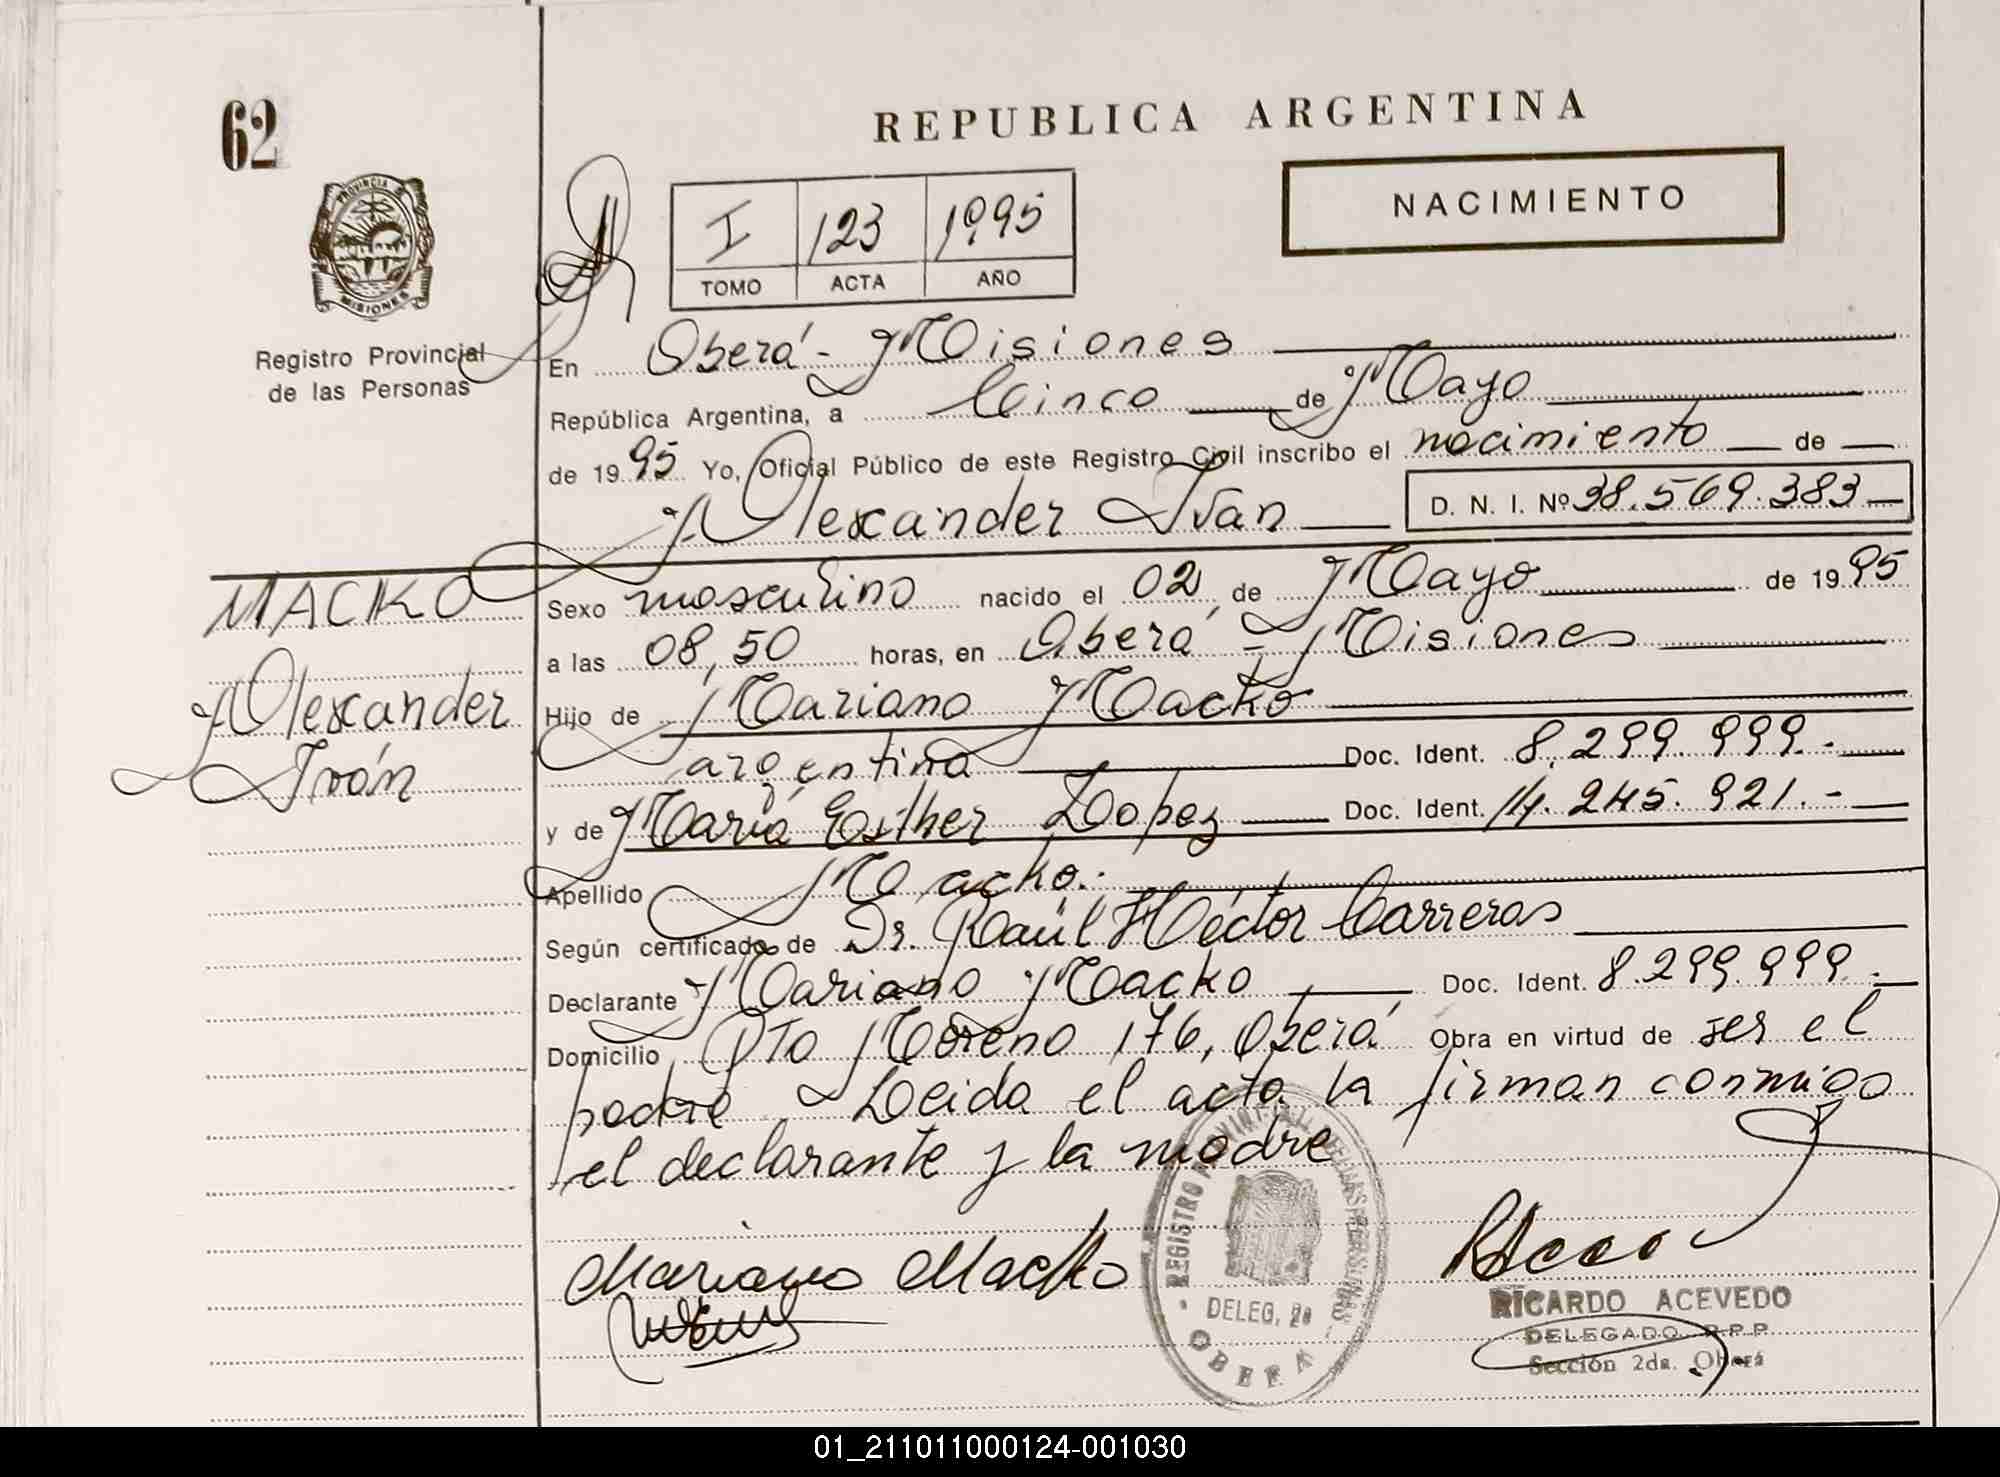 62
REPUBLICA ARGENTINA
NACIMIENTO
I 123 1995
TOMO ACTA AÑO
PROVINCIA DE
MISIONES
Registro Provincial
de las Personas
En Oberá - Misiones
República Argentina, a Cinco de Mayo
de 1995 Yo, Oficial Público de este Registro Civil inscribo el nacimiento de
Alexander Iván D. N. I. Nº 38.569.383
MACKO
Alexander
Iván
Sexo masculino nacido el 02, de Mayo de 1995
a las 08,50 horas, en Oberá - Misiones
Hijo de Mariano Macko
argentina Doc. Ident. 8.299.999.-
y de María Esther Lopez Doc. Ident. 14.245.921.-
Apellido Macko.-
Según certificado de Dr. Raúl Héctor Carreras
Declarante Mariano Macko Doc. Ident. 8.299.999.-
Domicilio Pto Moreno 176, Oberá Obra en virtud de ser el
padre. Leida el acta la firman conmigo
el declarante y la madre
Mariano Macko
REGISTRO PROVINCIAL DE LAS PERSONAS
DELEG. 2a
OBERA
RICARDO ACEVEDO
DELEGADO R.P.P.
Sección 2da. Oberá
01_211011000124-001030